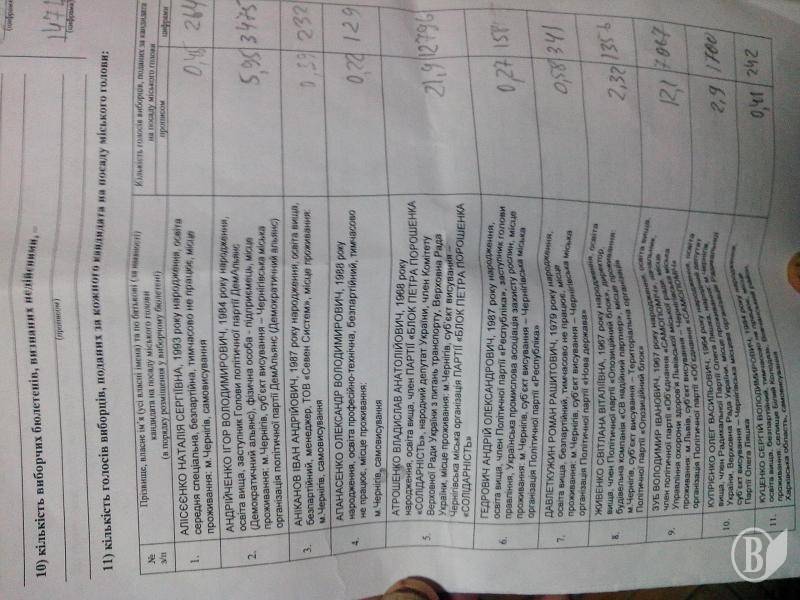 (цифрами)
1471
(цифрами)
10) кількість виборчих бюлетенів, визнаних недійсними, –
(прописом)
11) кількість голосів виборців, поданих за кожного кандидата на посаду міського голови:
№ з/п
Прізвище, власне ім'я (усі власні імена) та по батькові (за наявності)
кандидата на посаду міського голови
(в порядку розміщення у виборчому бюлетені)
Кількість голосів виборців, поданих за кандидата
на посаду міського голови
прописом
цифрами
1.
АЛІСЄЄНКО НАТАЛІЯ СЕРГІЇВНА, 1993 року народження, освіта
середня спеціальна, безпартійна, тимчасово не працює, місце
проживання: м.Чернігів, самовисування
264
2.
АНДРІЙЧЕНКО ІГОР ВОЛОДИМИРОВИЧ, 1984 року народження,
освіта вища, заступник Голови політичної партії ДемАльянс
(Демократичний альянс), фізична особа - підприємець, місце
проживання: м.Чернігів, суб'єкт висування – Чернігівська міська
організація політичної партії ДемАльянс (Демократичний альянс)
5,98 3475
3.
АНІКАНОВ ІВАН АНДРІЙОВИЧ, 1987 року народження, освіта вища,
безпартійний, менеджер, ТОВ «Севен Систем», місце проживання:
м.Чернігів, самовисування
232
4.
АПАНАСЕНКО ОЛЕКСАНДР ВОЛОДИМИРОВИЧ, 1988 року
народження, освіта професійно-технічна, безпартійний, тимчасово
не працює, місце проживання:
м.Чернігів, самовисування
0,22 129
5.
АТРОШЕНКО ВЛАДИСЛАВ АНАТОЛІЙОВИЧ, 1968 року
народження, освіта вища, член ПАРТІЇ «БЛОК ПЕТРА ПОРОШЕНКА
«СОЛІДАРНІСТЬ», народний депутат України, член Комітету
Верховної Ради України з питань транспорту, Верховна Рада
України, місце проживання: м.Чернігів, суб'єкт висування –
Чернігівська міська організація ПАРТІЇ «БЛОК ПЕТРА ПОРОШЕНКА
«СОЛІДАРНІСТЬ»
21,9
6.
ГЕДРОВИЧ АНДРІЙ ОЛЕКСАНДРОВИЧ, 1987 року народження,
освіта вища, член Політичної партії «Республіка», заступник голови
правління, Українська промислова асоціація захисту рослин, місце
проживання: м.Чернігів, суб'єкт висування – Чернігівська міська
організація Політичної партії «Республіка»
0,27 158
7.
ДАВЛЕТКУЖИН РОМАН РАШИТОВИЧ, 1979 року народження,
освіта вища, безпартійний, тимчасово не працює, місце
проживання: м.Чернігів, суб'єкт висування – Чернігівська міська
організація Політичної партії «Нова держава»
0,58 341
8.
ЖИВЕНКО СВІТЛАНА ВІТАЛІЇВНА, 1967 року народження, освіта
вища, член Політичної партії «Опозиційний блок», директор,
будівельна компанія «СВ надійний партнер», місце проживання:
м.Чернігів, суб'єкт висування – Територіальна організація
Політичної партії «Опозиційний блок»
2,32 1356
9.
ЗУБ ВОЛОДИМИР ІВАНОВИЧ, 1957 року народження, освіта вища,
член політичної партії «Об'єднання «САМОПОМІЧ», начальник,
Управління охорони здоров'я
організація Політичної партії «Об'єднання «САМОПОМІЧ»
12,1 7067
10.
КУПРІЄНКО ОЛЕГ ВАСИЛЬОВИЧ,
вища, член Радикальної Партії Олега Ляшка, народний депутат
України, Верховна Рада України, місце проживання: м.Чернігів,
суб'єкт висування – Чернігівська міська організація Радикальної
Партії Олега Ляшка
2,9 1700
11.
КУЦЕНКО СЕРГІЙ ВОЛОДИМИРОВИЧ,
освіта вища, безпартійний, тимчасово не працює, місце
проживання: селище
Харківська область, самовисування
0,41 242
В